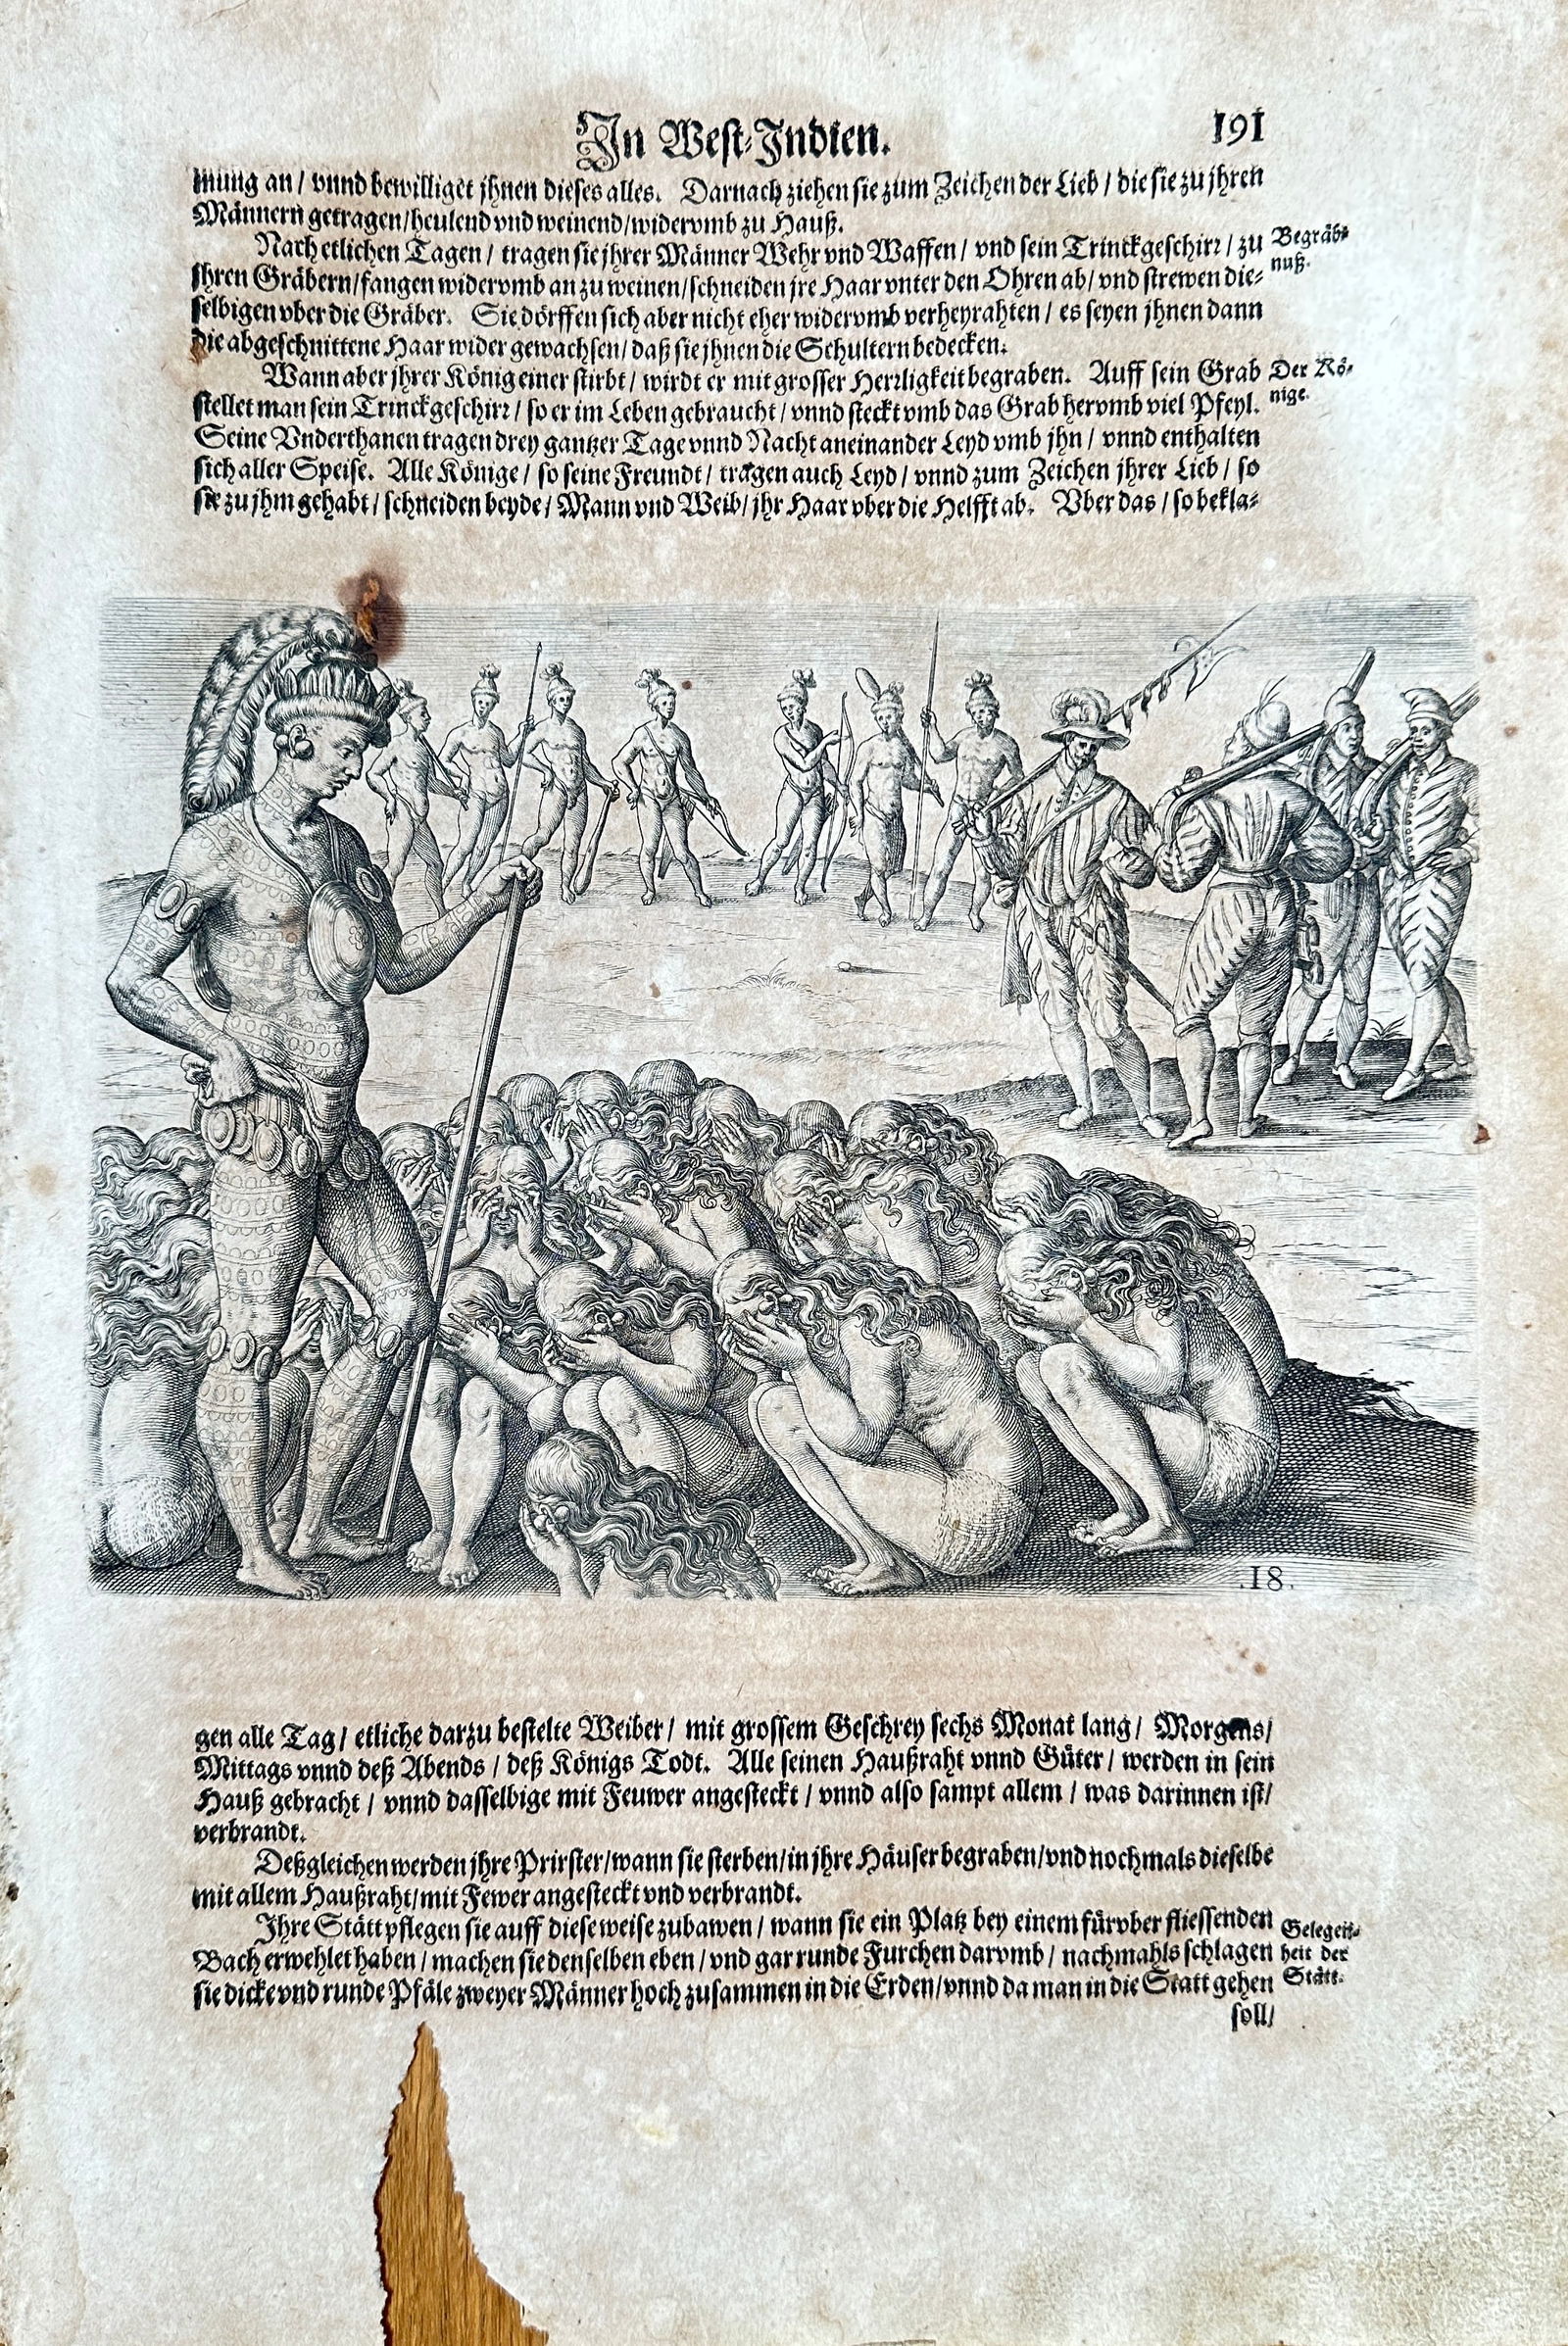 In West-Indien.
191
mung an / vnnd bewilliget jhnen dieses alles. Darnach ziehen sie zum Zeichen der Lieb / die sie zu jhren
Männern getragen / heulend vnd weinend / widervmb zu Hauß.
Nach etlichen Tagen / tragen sie jhrer Männer Wehr vnd Waffen / vnd sein Trinckgeschirr / zu
Begräb-
nuß.
jhren Gräbern / fangen widervmb an zu weinen / schneiden jre Haar vnter den Ohren ab / vnd strewen die-
selbigen vber die Gräber. Sie dörffen sich aber nicht eher widervmb verheyrahten / es seyen jhnen dann
die abgeschnittene Haar wider gewachsen / daß sie jhnen die Schultern bedecken.
Wann aber jhrer König einer stirbt / wirdt er mit grosser Herrligkeit begraben. Auff sein Grab
Der Kö-
nige.
stellet man sein Trinckgeschirr / so er im Leben gebraucht / vnnd steckt vmb das Grab hervmb viel Pfeyl.
Seine Vnderthanen tragen drey gantzer Tage vnnd Nacht aneinander Leyd vmb jhn / vnnd enthalten
sich aller Speise. Alle Könige / so seine Freundt / tragen auch Leyd / vnnd zum Zeichen jhrer Lieb / so
sie zu jhm gehabt / schneiden beyde / Mann vnd Weib / jhr Haar vber die Helfft ab. Vber das / so bekla-
.18.
gen alle Tag / etliche darzu bestelte Weiber / mit grossem Geschrey sechs Monat lang / Morgens /
Mittags vnnd deß Abends / deß Königs Todt. Alle seinen Haußraht vnnd Güter / werden in sein
Hauß gebracht / vnnd dasselbige mit Feuwer angesteckt / vnnd also sampt allem / was darinnen ist /
verbrandt.
Deßgleichen werden jhre Prirster / wann sie sterben / in jhre Häuser begraben / vnd nochmals dieselbe
mit allem Haußraht / mit Fewer angesteckt vnd verbrandt.
Ihre Stätt pflegen sie auff diese weise zubawen / wann sie ein Platz bey einem fürvber fliessenden
Gelegen-
heit der
Stätt.
Bach erwehlet haben / machen sie denselben eben / vnd gar runde Furchen darvmb / nachmahls schlagen
sie dicke vnd runde Pfäle zweyer Männer hoch zusammen in die Erden / vnnd da man in die Statt gehen
soll /